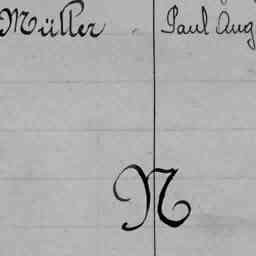 Müller Paul Aug
N